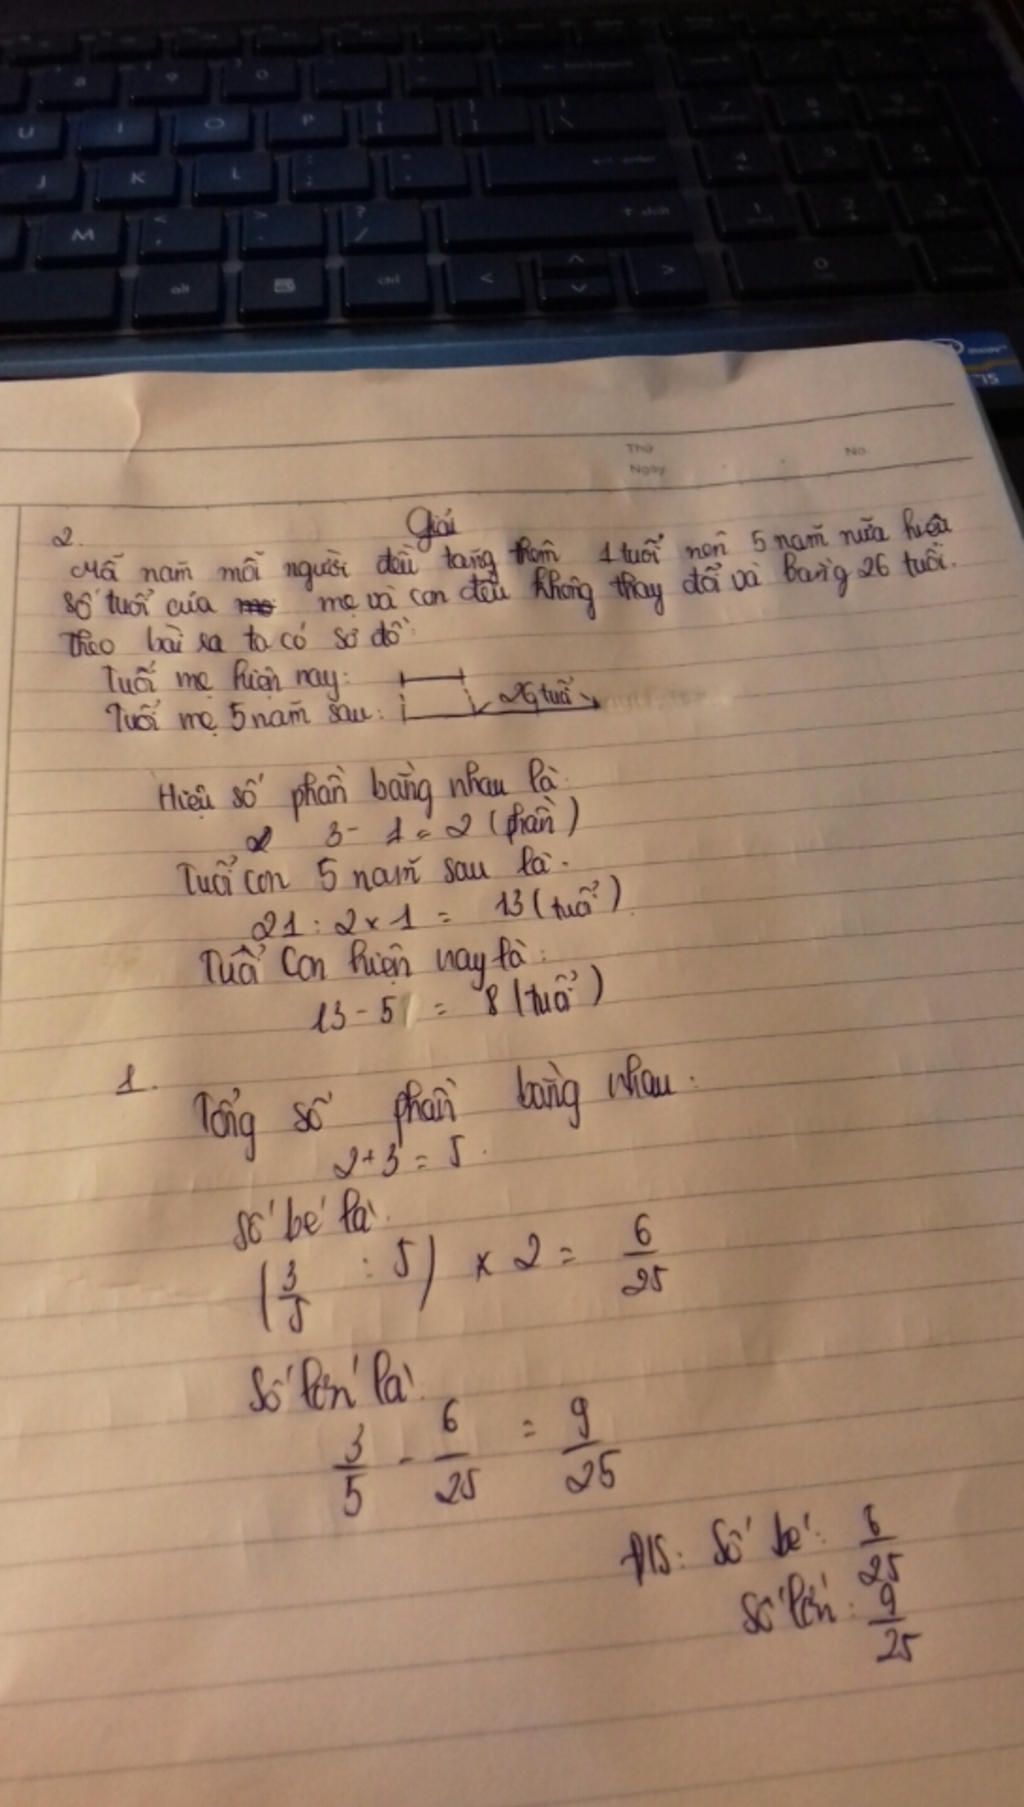 U I O P
J K L
M
alt ctrl
Thứ
Ngày
No.
2. Giải
Mỗi năm mỗi người đều tăng thêm 1 tuổi nên 5 năm nữa hiệu
số tuổi của mẹ và con đều không thay đổi và bằng 26 tuổi.
Theo bài ra ta có sơ đồ:
Tuổi mẹ hiện nay:
Tuổi mẹ 5 năm sau: 26 tuổi
Hiệu số phần bằng nhau là:
3 - 1 = 2 (phần)
Tuổi con 5 năm sau là.
21 : 2 x 1 = 13 (tuổi)
Tuổi con hiện nay là:
13 - 5 = 8 (tuổi)
1.
Tổng số phần bằng nhau:
2 + 3 = 5.
Số bé là:
(3/5 : 5) x 2 = 6/25
Số lớn là:
3/5 - 6/25 = 9/25
Đ/S: Số bé: 6/25
Số lớn: 9/25